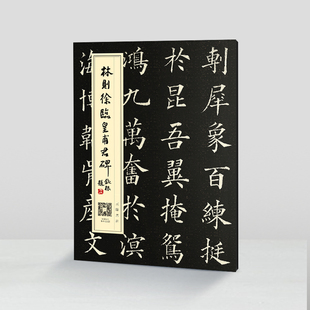 剸犀象百練挺
於昆吾翼掩鴛
鴻九萬奮於溟
海博韋肯產文
林則徐臨皇甫君碑